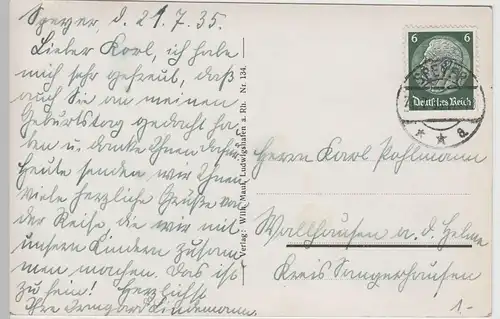 Speyer, d. 21.7.35.
Lieber Karl, ich habe
mich sehr gefreut, daß
auch Sie an meinen
Geburtstag gedacht ha-
ben u. danke Ihnen dafür
Heute senden wir Ihnen
viele herzliche Grüße von
der Reise, die wir mit
unsern Kindern zusam-
men machen. Das ist
zu fein! Herzlichst
Ihre Irmgard Lindemann.
Verlag: Wilh. Mauk, Ludwigshafen a. Rh. Nr. 134.
6 6
SPEYER
Deutsches Reich
* * a
Herrn Karl Pohlmann
Wallhausen a. d. Helme
Kreis Sangerhausen
1.-